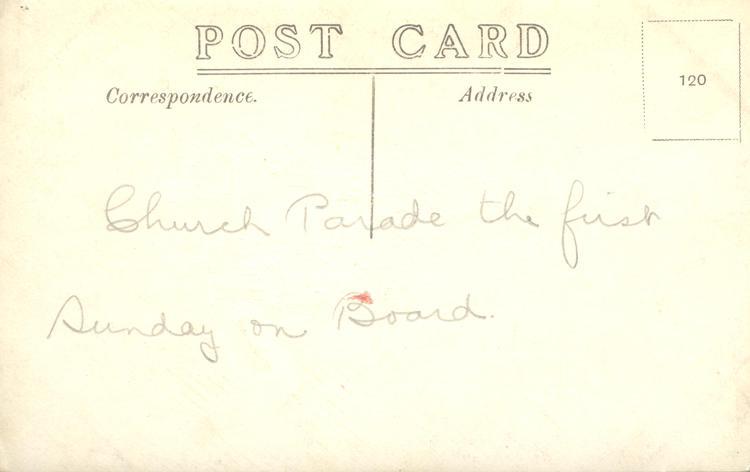 POST CARD
Correspondence. Address
120
Church Parade the first
Sunday on Board.